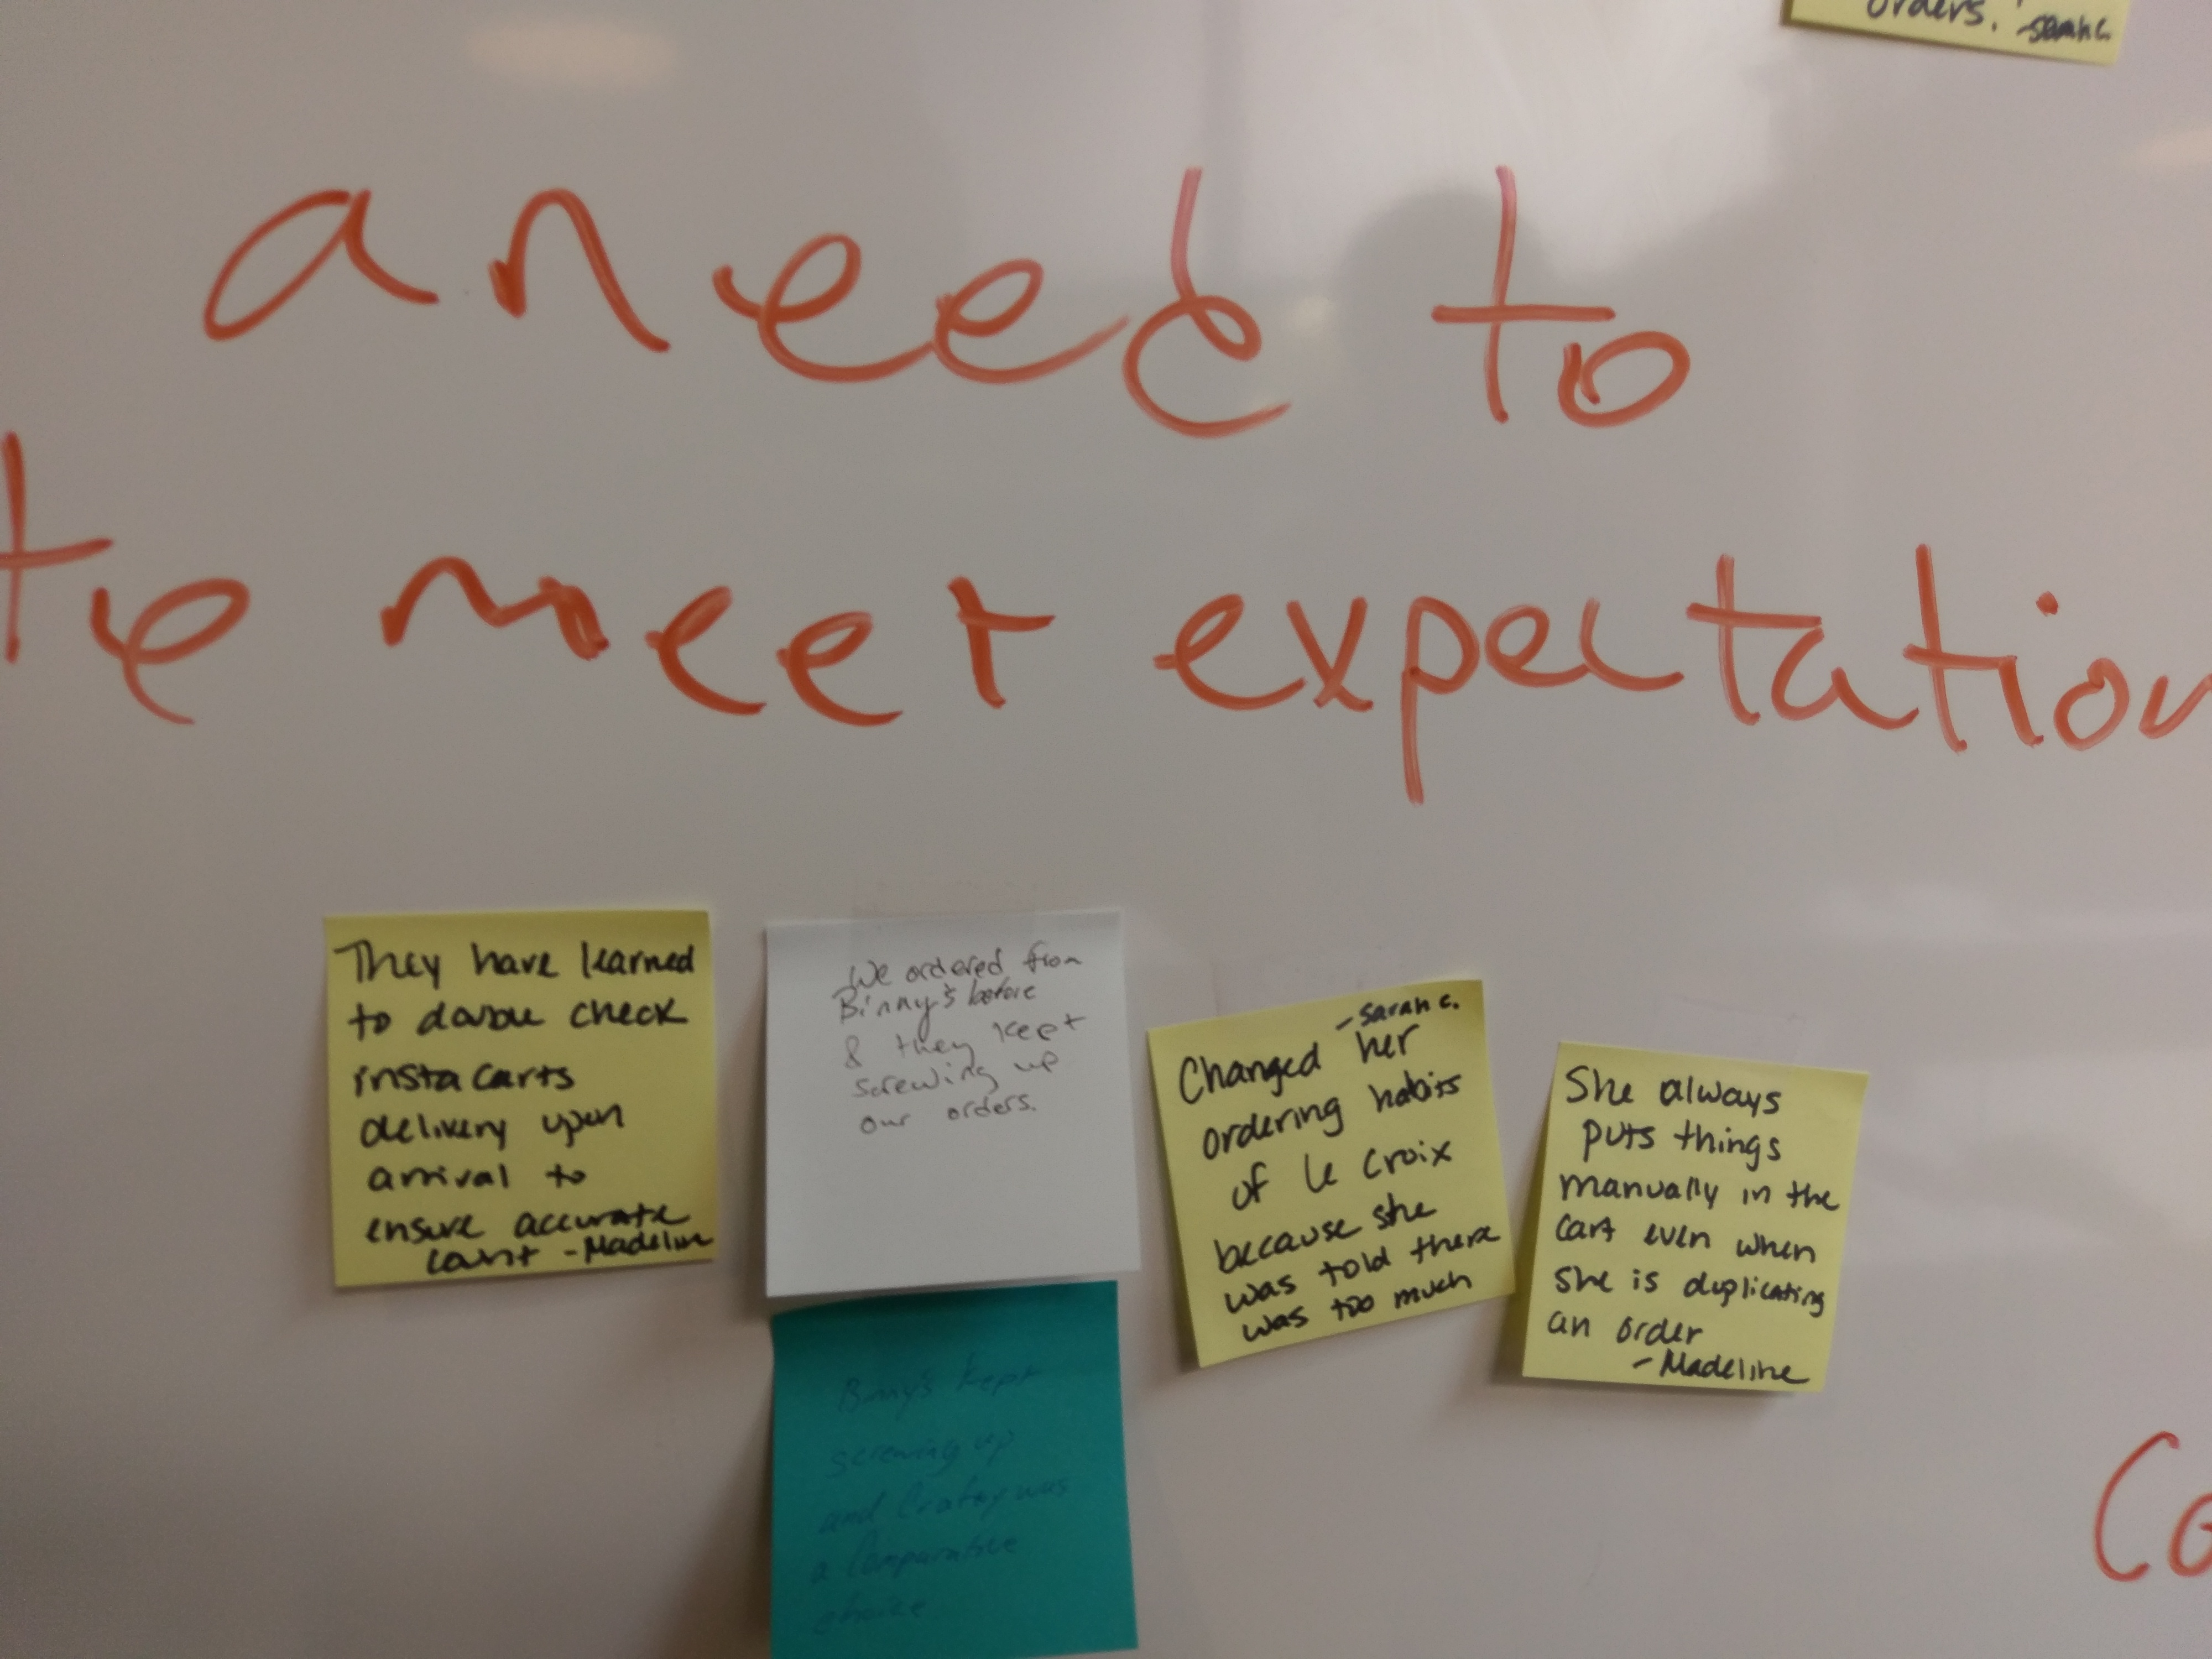 orders. -sarah c.
a need to
te meet expectation
They have learned
to double check
instacarts
delivery upon
arrival to
ensure accurate
count -Madeline
We ordered from
Binny's before
& they kept
screwing up
our orders.
Binny's kept
screwing up
and was
a comparative
choice
-sarah c.
Changed her
ordering habits
of le croix
because she
was told there
was too much
She always
puts things
manually in the
cart even when
she is duplicating
an order
-Madeline
Co